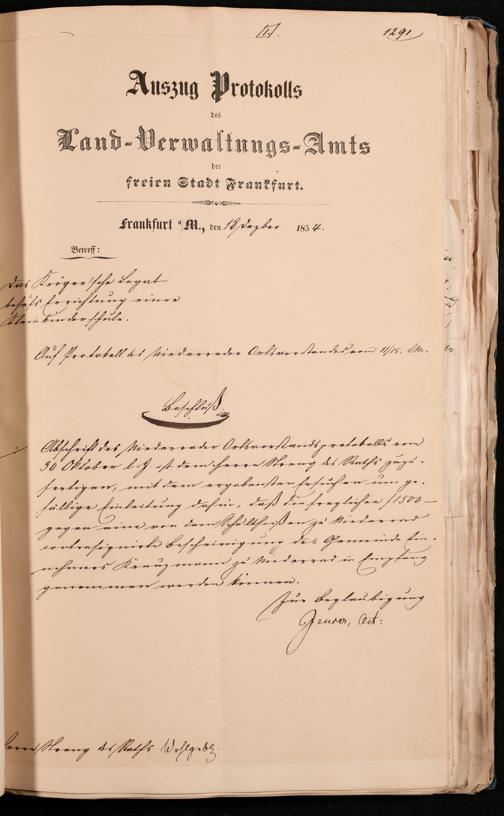 1291
Auszug Protokolls
des
Land-Verwaltungs-Amts
der
freien Stadt Frankfurt.
Frankfurt a/M., den 18 Dezber 1854.
Betreff:
Das Krüger'sche Legat
behufs Errichtung einer
Kleinkinderschule.
Auf Protokoll des Niederräder Ortsvorstandes vom 11/15. dM.
Beschluß
Abschrift des Niederräder Ortsvorstandsprotokolls vom
30 Oktober l. J. ist dem Herrn des Raths zuzu-
fertigen, mit dem ergebensten Ersuchen um ge-
fällige Einleitung dahin, daß die fraglichen f 1500 —
gegen eine von dem Schultheißen zu Niederrad
contrasignirte Bescheinigung des Gemeinde Ein-
nehmers Kreuzmann zu Niederrad in Empfang
genommen werden können.
Zur Beglaubigung
Act:
Herrn des Raths Wohlgeb.